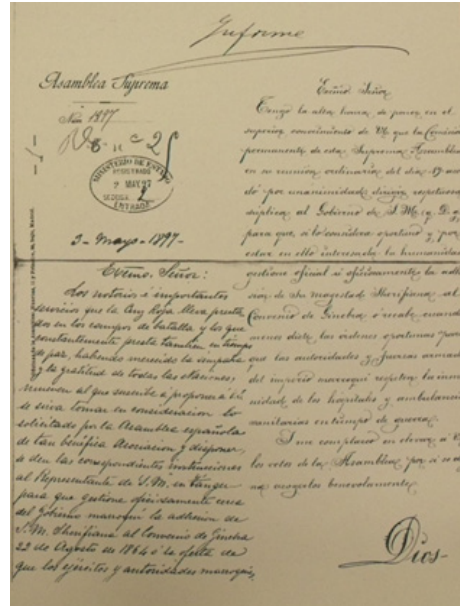 Informe
Asamblea Suprema
Núm 1897
MINISTERIO DE ESTADO
REGISTRADO
7 MAY. 97
ENTRADA
3 - Mayo - 1897 -
Excmo. Señor:
Los notorios é importantes
servicios que la Cruz Roja lleva presta
dos en los campos de batalla y los que
constantemente presta tambien en tiempo
de paz, habiendo merecido la simpatía
y la gratitud de todas las naciones,
mueven al que suscribe a proponer á V.E.
se sirva tomar en consideracion lo
solicitado por la Asamblea española
de tan benéfica Asociacion y disponer
se den las correspondientes instrucciones
al Representante de S.M. en Tanger
para que gestione oficialmente cerca
del Gobierno marroquí la adhesion de
S.M. Sherifiana al Convenio de Ginebra
22 de Agosto de 1864 ó la oferta de
que los ejércitos y autoridades marroquíes,
Excmo Señor
Tengo la alta honra de poner en el
superior conocimiento de VE que la Comision
permanente de esta Suprema Asamblea
en su reunion ordinaria del dia 17 acor
dó por unanimidad dirigir respetuosa
súplica al Gobierno de S.M. (q. D. g.)
para que, si lo considera oportuno y por
estar en ello interesada la humanidad
gestione oficial ó oficiosamente la adhe
sion de Su magestad Sherifiana al
Convenio de Ginebra ó recabe cuando
menos dicte las órdenes oportunas para
que las autoridades y fuerzas armadas
del imperio marroquí respeten la inmu
nidad de los hospitales y ambulancias
sanitarias en tiempo de guerra.
Y me complazco en elevar á V.E.
los votos de la Asamblea por si se dig
na acogerlos benevolamente.
Dios-